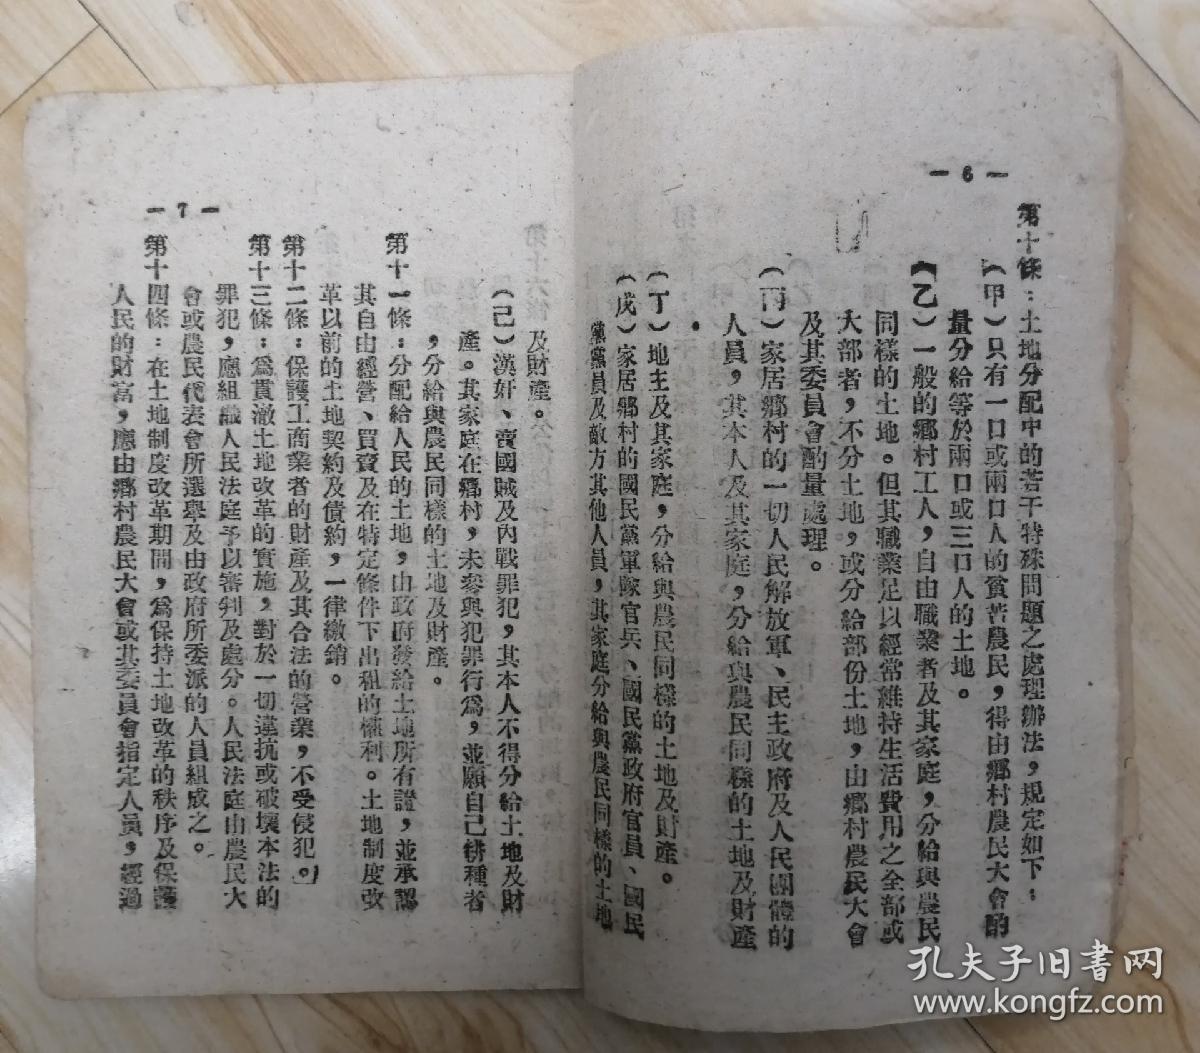 — 6 —
第十條：土地分配中的若干特殊問題之處理辦法，規定如下：
（甲）只有一口或兩口人的貧苦農民，得由鄉村農民大會酌
量分給等於兩口或三口人的土地。
（乙）一般的鄉村工人，自由職業者及其家庭，分給與農民
同樣的土地。但其職業足以經常維持生活費用之全部或
大部者，不分土地，或分給部份土地，由鄉村農民大會
及其委員會酌量處理。
（丙）家居鄉村的一切人民解放軍、民主政府及人民團體的
人員，其本人及其家庭，分給與農民同樣的土地及財產
（丁）地主及其家庭，分給與農民同樣的土地及財產。
（戊）家居鄉村的國民黨軍隊官兵、國民黨政府官員、國民
黨黨員及敵方其他人員，其家庭分給與農民同樣的土地
— 7 —
及財產。
（己）漢奸、賣國賊及內戰罪犯，其本人不得分給土地及財
產。其家庭在鄉村，未參與犯罪行爲，並願自己耕種者
，分給與農民同樣的土地及財產。
第十一條：分配給人民的土地，由政府發給土地所有證，並承認
其自由經營、買賣及在特定條件下出租的權利。土地制度改
革以前的土地契約及債約，一律繳銷。
第十二條：保護工商業者的財產及其合法的營業，不受侵犯。
第十三條：爲貫澈土地改革的實施，對於一切違抗或破壞本法的
罪犯，應組織人民法庭予以審判及處分。人民法庭由農民大
會或農民代表會所選舉及由政府所委派的人員組成之。
第十四條：在土地制度改革期間，爲保持土地改革的秩序及保護
人民的財富，應由鄉村農民大會或其委員會指定人員，經過
孔夫子旧書网
www.kongfz.com